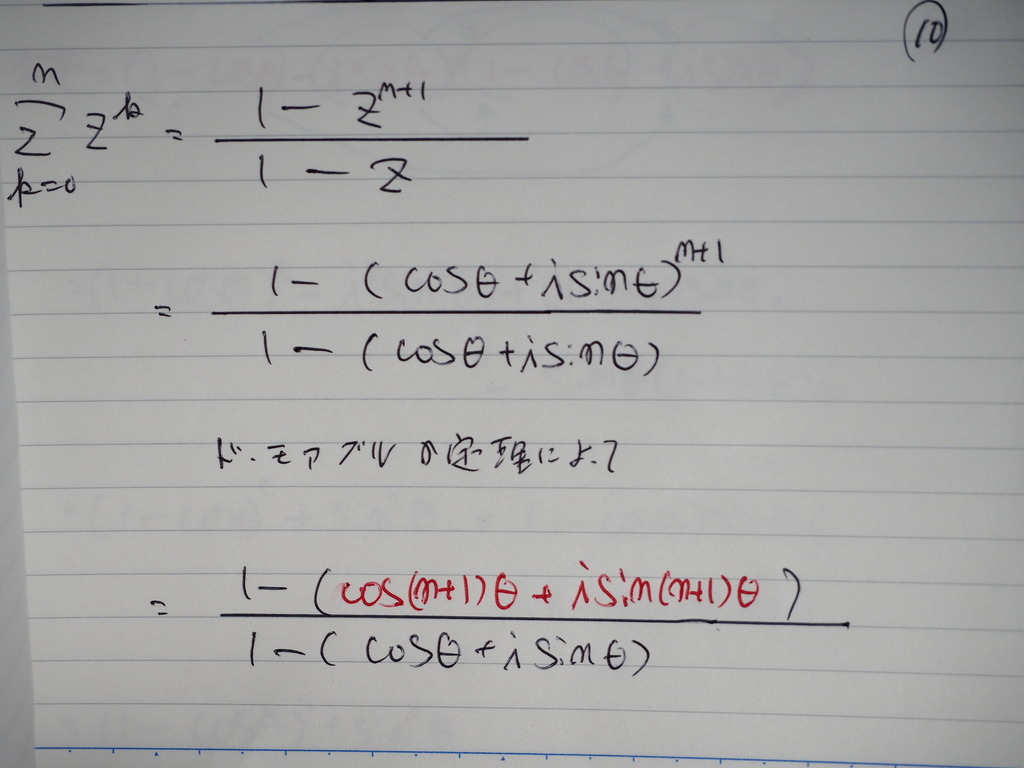 ⑩
\sum_{k=0}^{n} z^k = \frac{1 - z^{n+1}}{1 - z}
= \frac{1 - (cosθ + i sinθ)^{n+1}}{1 - (cosθ + i sinθ)}
ド・モアブルの定理によって
= \frac{1 - (cos(n+1)θ + i sin(n+1)θ)}{1 - (cosθ + i sinθ)}